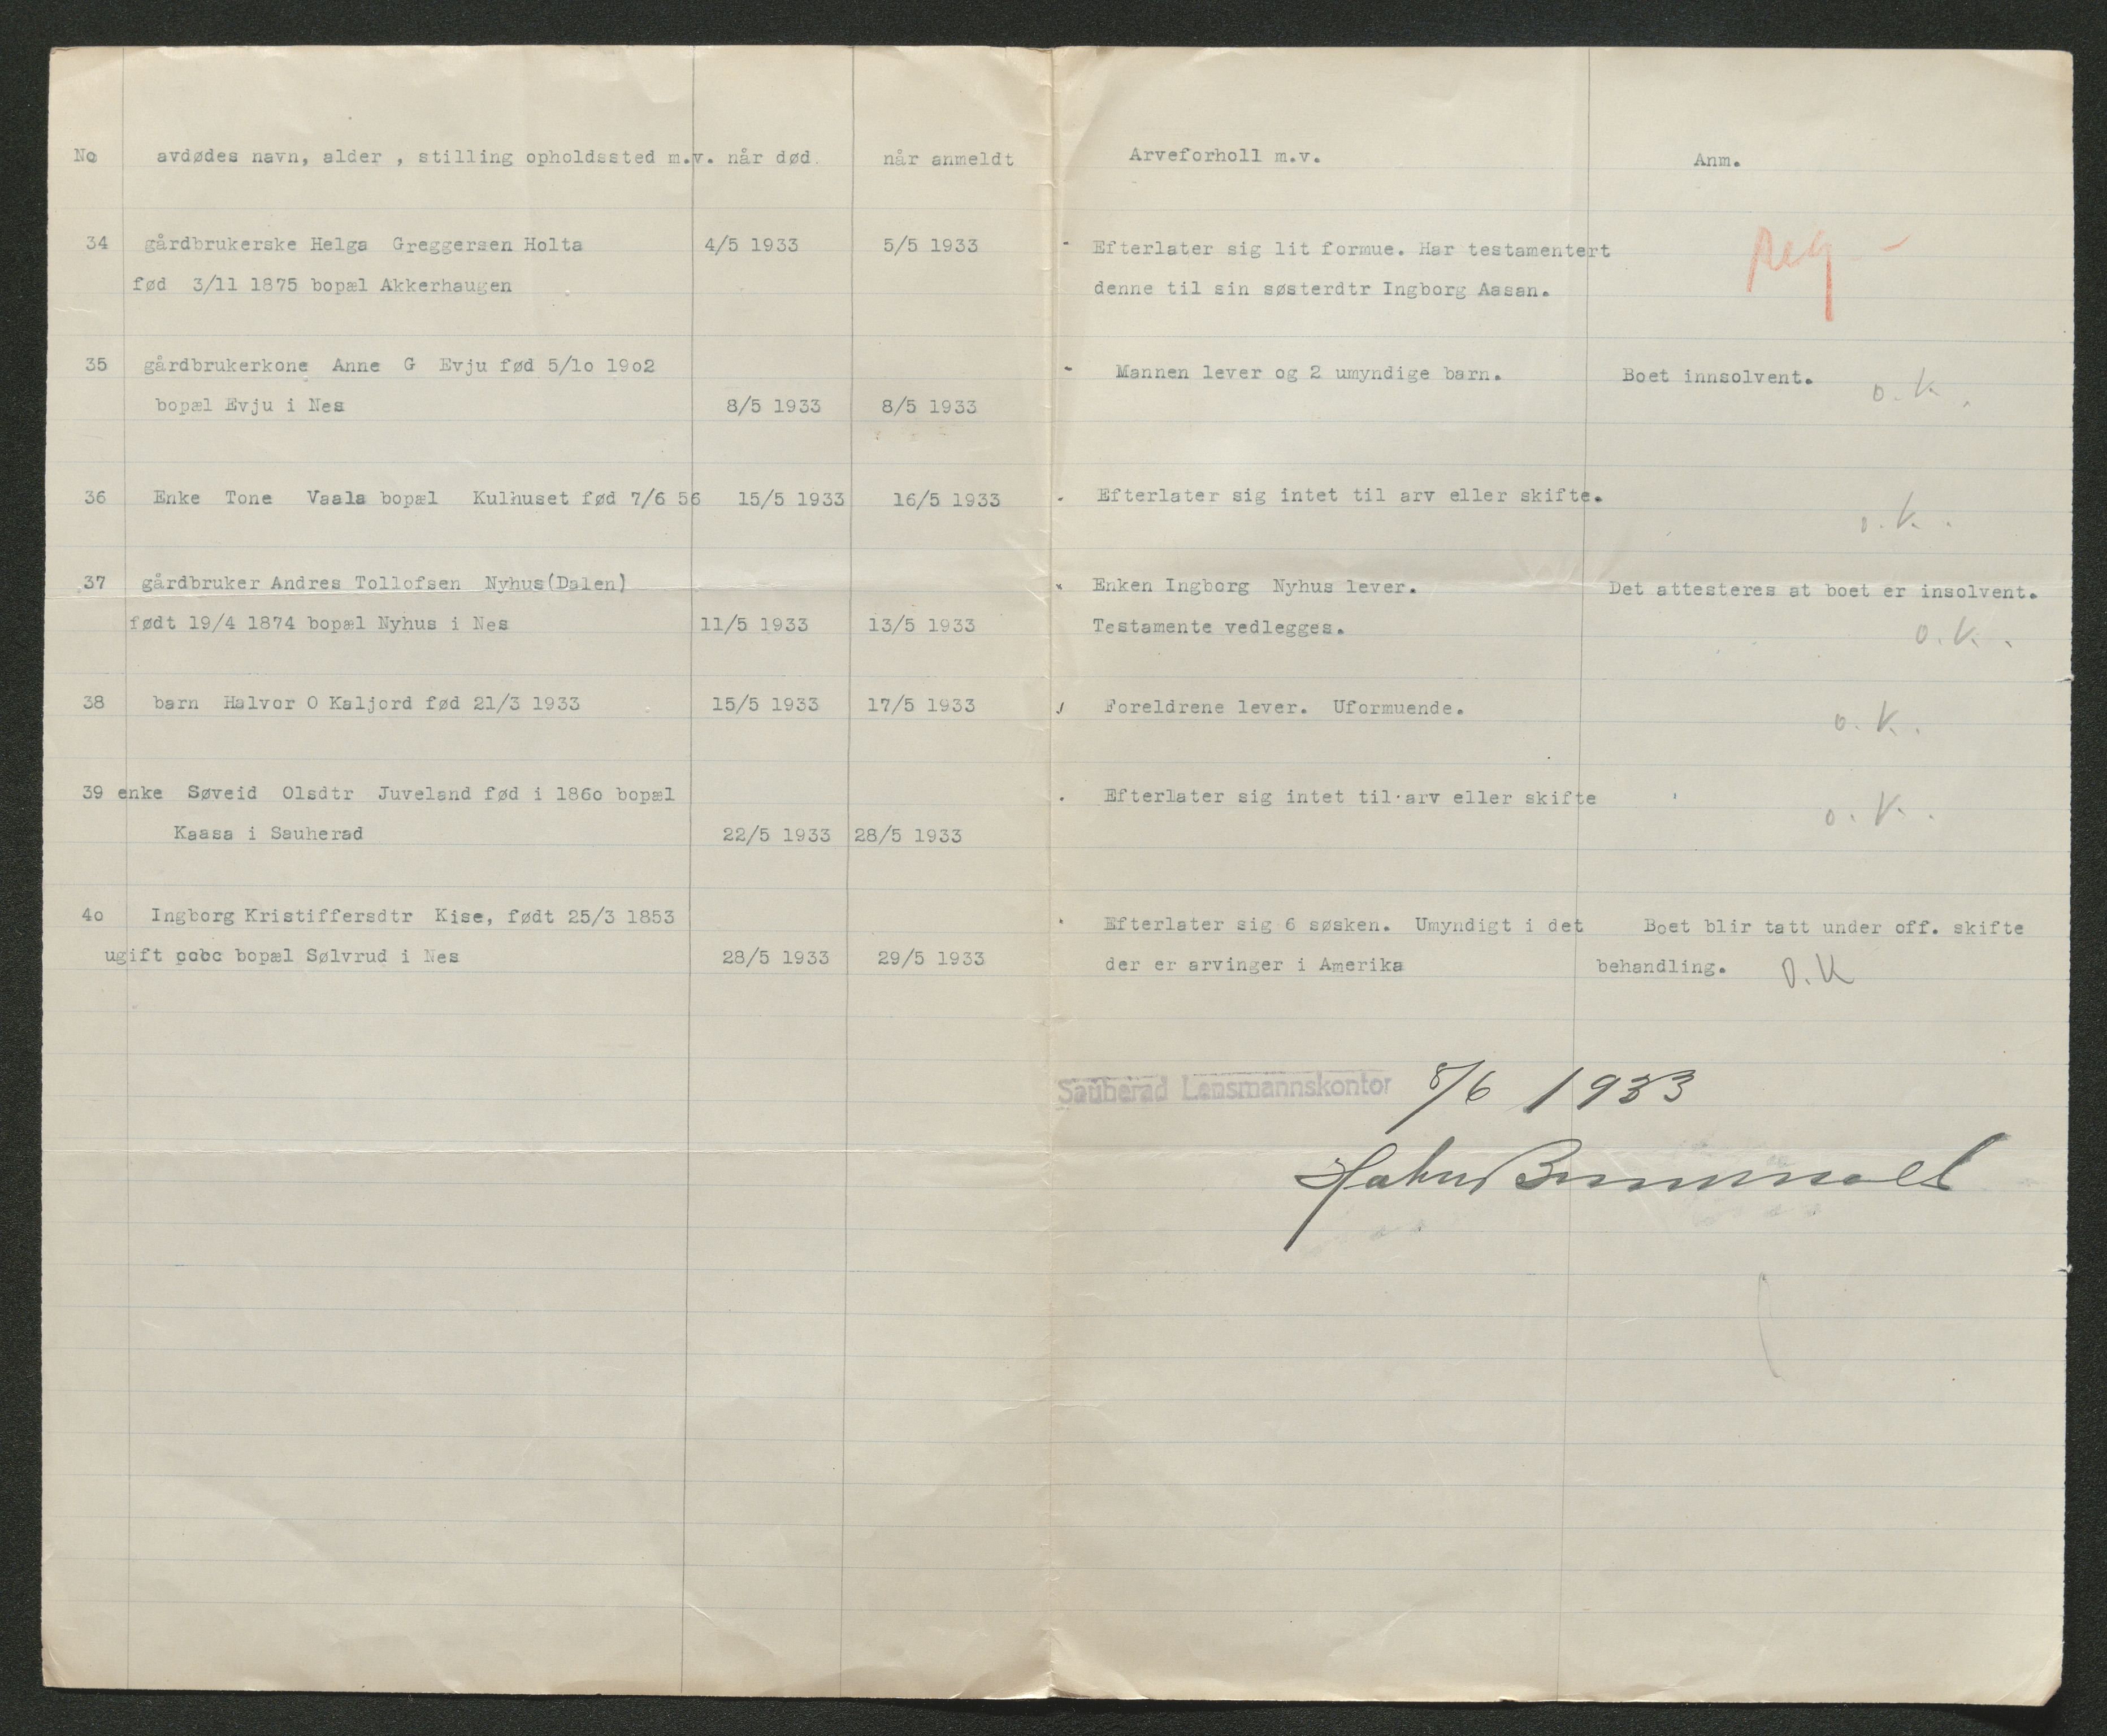 No avdødes navn, alder , stilling opholdssted m.v. når død. når anmeldt Arveforholl m.v. Anm.
34 gårdbrukerske Helga Greggersen Holta 4/5 1933 5/5 1933 - Efterlater sig lit formue. Har testamentert
fød 3/11 1875 bopæl Akkerhaugen denne til sin søsterdtr Ingborg Aasan. reg -
35 gårdbrukerkone Anne G Evju fød 5/1o 19o2 - Mannen lever og 2 umyndige barn. Boet innsolvent. o.k.
bopæl Evju i Nes 8/5 1933 8/5 1933
36 Enke Tone Vaala bopæl Kulhuset fød 7/6 56 15/5 1933 16/5 1933 Efterlater sig intet til arv eller skifte. o.k.
37 gårdbruker Andres Tollofsen Nyhus(Dalen) Enken Ingborg Nyhus lever. Det attesteres at boet er insolvent.
født 19/4 1874 bopæl Nyhus i Nes 11/5 1933 13/5 1933 Testamente vedlegges. o.k.
38 barn Halvor O Kaljord fød 21/3 1933 15/5 1933 17/5 1933 Foreldrene lever. Uformuende. o.k.
39 enke Søveid Olsdtr Juveland fød i 186o bopæl Efterlater sig intet til arv eller skifte o.k.
Kaasa i Sauherad 22/5 1933 28/5 1933
4o Ingborg Kristiffersdtr Kise, født 25/3 1853 Efterlater sig 6 søsken. Umyndigt i det Boet blir tatt under off. skifte
ugift bopæl Sølvrud i Nes 28/5 1933 29/5 1933 der er arvinger i Amerika behandling. O.K
Sauherad Lensmannskontor 8/6 1933